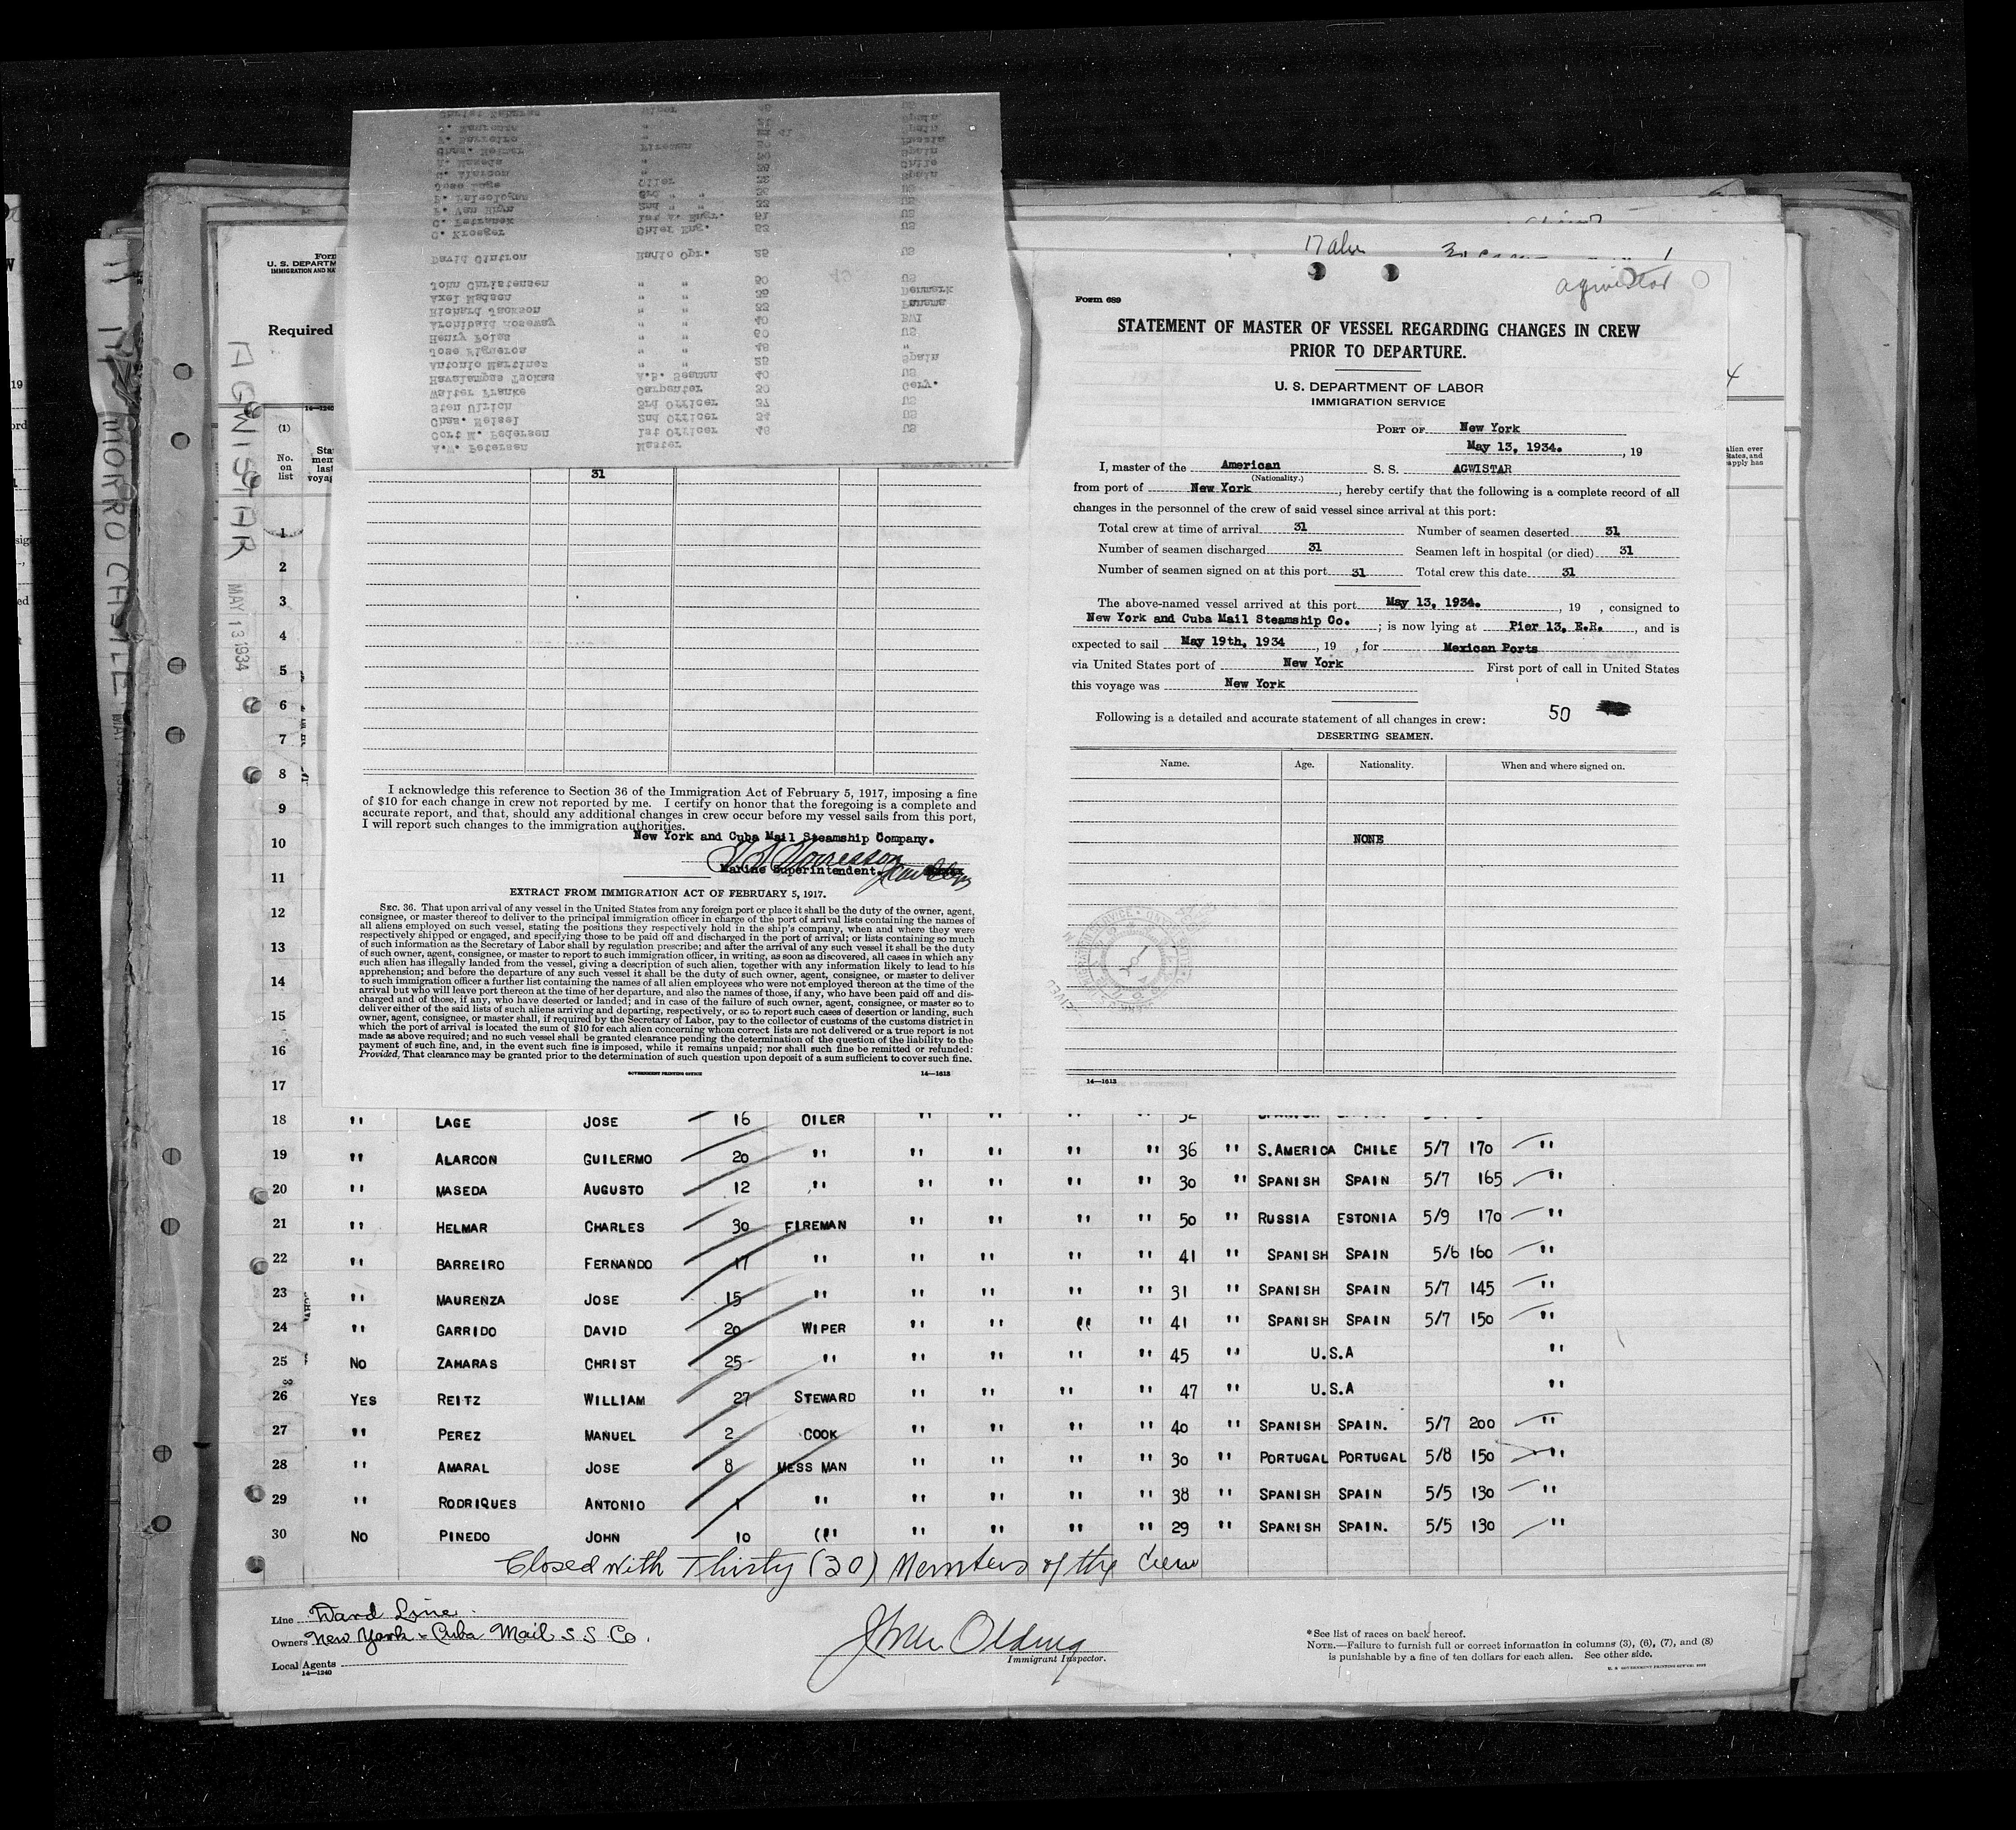 Form 689
agwistar
STATEMENT OF MASTER OF VESSEL REGARDING CHANGES IN CREW
PRIOR TO DEPARTURE.
U. S. DEPARTMENT OF LABOR
IMMIGRATION SERVICE
PORT OF New York
May 13, 1934. , 19
I, master of the American S. S. AGWISTAR
(Nationality.)
from port of New York , hereby certify that the following is a complete record of all
changes in the personnel of the crew of said vessel since arrival at this port:
Total crew at time of arrival 31 Number of seamen deserted 31
Number of seamen discharged 31 Seamen left in hospital (or died) 31
Number of seamen signed on at this port 31 Total crew this date 31
The above-named vessel arrived at this port May 13, 1934. , 19 , consigned to
New York and Cuba Mail Steamship Co. ; is now lying at Pier 13, E.R. , and is
expected to sail May 19th, 1934 , 19 , for Mexican Ports
via United States port of New York First port of call in United States
this voyage was New York
50
Following is a detailed and accurate statement of all changes in crew:
DESERTING SEAMEN.
Name. Age. Nationality. When and where signed on.
NONE
14—1613
John Christensen " " 50 US
Axel Madsen " " 35 Denmark
Richard Jackson " " 33 Panama
Archibald Roseway " " 40 BWI
Henry Folss " " 60 US
Jose Figueros " " 48 "
Antonio Martines " " 25 Spain
Havalampas Tsokas A.B. Seaman 40 US
Walter Franke Carpenter 30 Gery.
Sten Ulrich 3rd Officer 37 US
Chas. Weisel 2nd Officer 34 US
Cort M. Pedersen 1st Officer 48 US
A.W. Petersen Master
David Cintron Radio Opr. 25 US
C. Kroeger Chief Eng. 53 US
C. Petranek 1st A. Engr. 51 US
31
I acknowledge this reference to Section 36 of the Immigration Act of February 5, 1917, imposing a fine
of $10 for each change in crew not reported by me. I certify on honor that the foregoing is a complete and
accurate report, and that, should any additional changes in crew occur before my vessel sails from this port,
I will report such changes to the immigration authorities.
New York and Cuba Mail Steamship Company.
Marine Superintendent.
EXTRACT FROM IMMIGRATION ACT OF FEBRUARY 5, 1917.
SEC. 36. That upon arrival of any vessel in the United States from any foreign port or place it shall be the duty of the owner, agent,
consignee, or master thereof to deliver to the principal immigration officer in charge of the port of arrival lists containing the names of
all aliens employed on such vessel, stating the positions they respectively hold in the ship's company, when and where they were
respectively shipped or engaged, and specifying those to be paid off and discharged in the port of arrival; or lists containing so much
of such information as the Secretary of Labor shall by regulation prescribe; and after the arrival of any such vessel it shall be the duty
of such owner, agent, consignee, or master to report to such immigration officer, in writing, as soon as discovered, all cases in which any
such alien has illegally landed from the vessel, giving a description of such alien, together with any information likely to lead to his
apprehension; and before the departure of any such vessel it shall be the duty of such owner, agent, consignee, or master to deliver
to such immigration officer a further list containing the names of all alien employees who were not employed thereon at the time of the
arrival but who will leave port thereon at the time of her departure, and also the names of those, if any, who have been paid off and dis-
charged and of those, if any, who have deserted or landed; and in case of the failure of such owner, agent, consignee, or master so to
deliver either of the said lists of such aliens arriving and departing, respectively, or so to report such cases of desertion or landing, such
owner, agent, consignee, or master shall, if required by the Secretary of Labor, pay to the collector of customs of the customs district in
which the port of arrival is located the sum of $10 for each alien concerning whom correct lists are not delivered or a true report is not
made as above required; and no such vessel shall be granted clearance pending the determination of the question of the liability to the
payment of such fine, and, in the event such fine is imposed, while it remains unpaid; nor shall such fine be remitted or refunded:
Provided, That clearance may be granted prior to the determination of such question upon deposit of a sum sufficient to cover such fine.
GOVERNMENT PRINTING OFFICE 14—1613
Form
U. S. DEPARTM
IMMIGRATION AND NA
Required
AGWISTAR MAY 13 1934
MORRO CASTLE
14—1240
(1)
No.
on
list
1
2
3
4
5
6
7
8
9
10
11
12
13
14
15
16
17
18 " LAGE JOSE 16 OILER " " " " 32
19 " ALARCON GUILERMO 20 " " " " " 36 " S. AMERICA CHILE 5/7 170 "
20 " MASEDA AUGUSTO 12 " " " " " 30 " SPANISH SPAIN 5/7 165 "
21 " HELMAR CHARLES 30 FIREMAN " " " " 50 " RUSSIA ESTONIA 5/9 170 "
22 " BARREIRO FERNANDO 17 " " " " " 41 " SPANISH SPAIN 5/6 160 "
23 " MAURENZA JOSE 15 " " " " " 31 " SPANISH SPAIN 5/7 145 "
24 " GARRIDO DAVID 20 WIPER " " " " 41 " SPANISH SPAIN 5/7 150 "
25 NO ZAHARAS CHRIST 25 " " " " " 45 " U.S.A "
26 YES REITZ WILLIAM 27 STEWARD " " " " 47 " U.S.A "
27 " PEREZ MANUEL 2 COOK " " " " 40 " SPANISH SPAIN. 5/7 200 "
28 " AMARAL JOSE 8 MESS MAN " " " " 30 " PORTUGAL PORTUGAL 5/8 150 "
29 " RODRIQUES ANTONIO 1 " " " " " 38 " SPANISH SPAIN 5/5 130 "
30 NO PINEDO JOHN 10 " " " " " 29 " SPANISH SPAIN. 5/5 130 "
Closed with Thirty (30) Members of the Crew
Line Ward Line
Owners New York & Cuba Mail S S Co.
Local Agents
14—1240
Immigrant Inspector.
*See list of races on back hereof.
NOTE.—Failure to furnish full or correct information in columns (3), (6), (7), and (8)
is punishable by a fine of ten dollars for each alien. See other side.